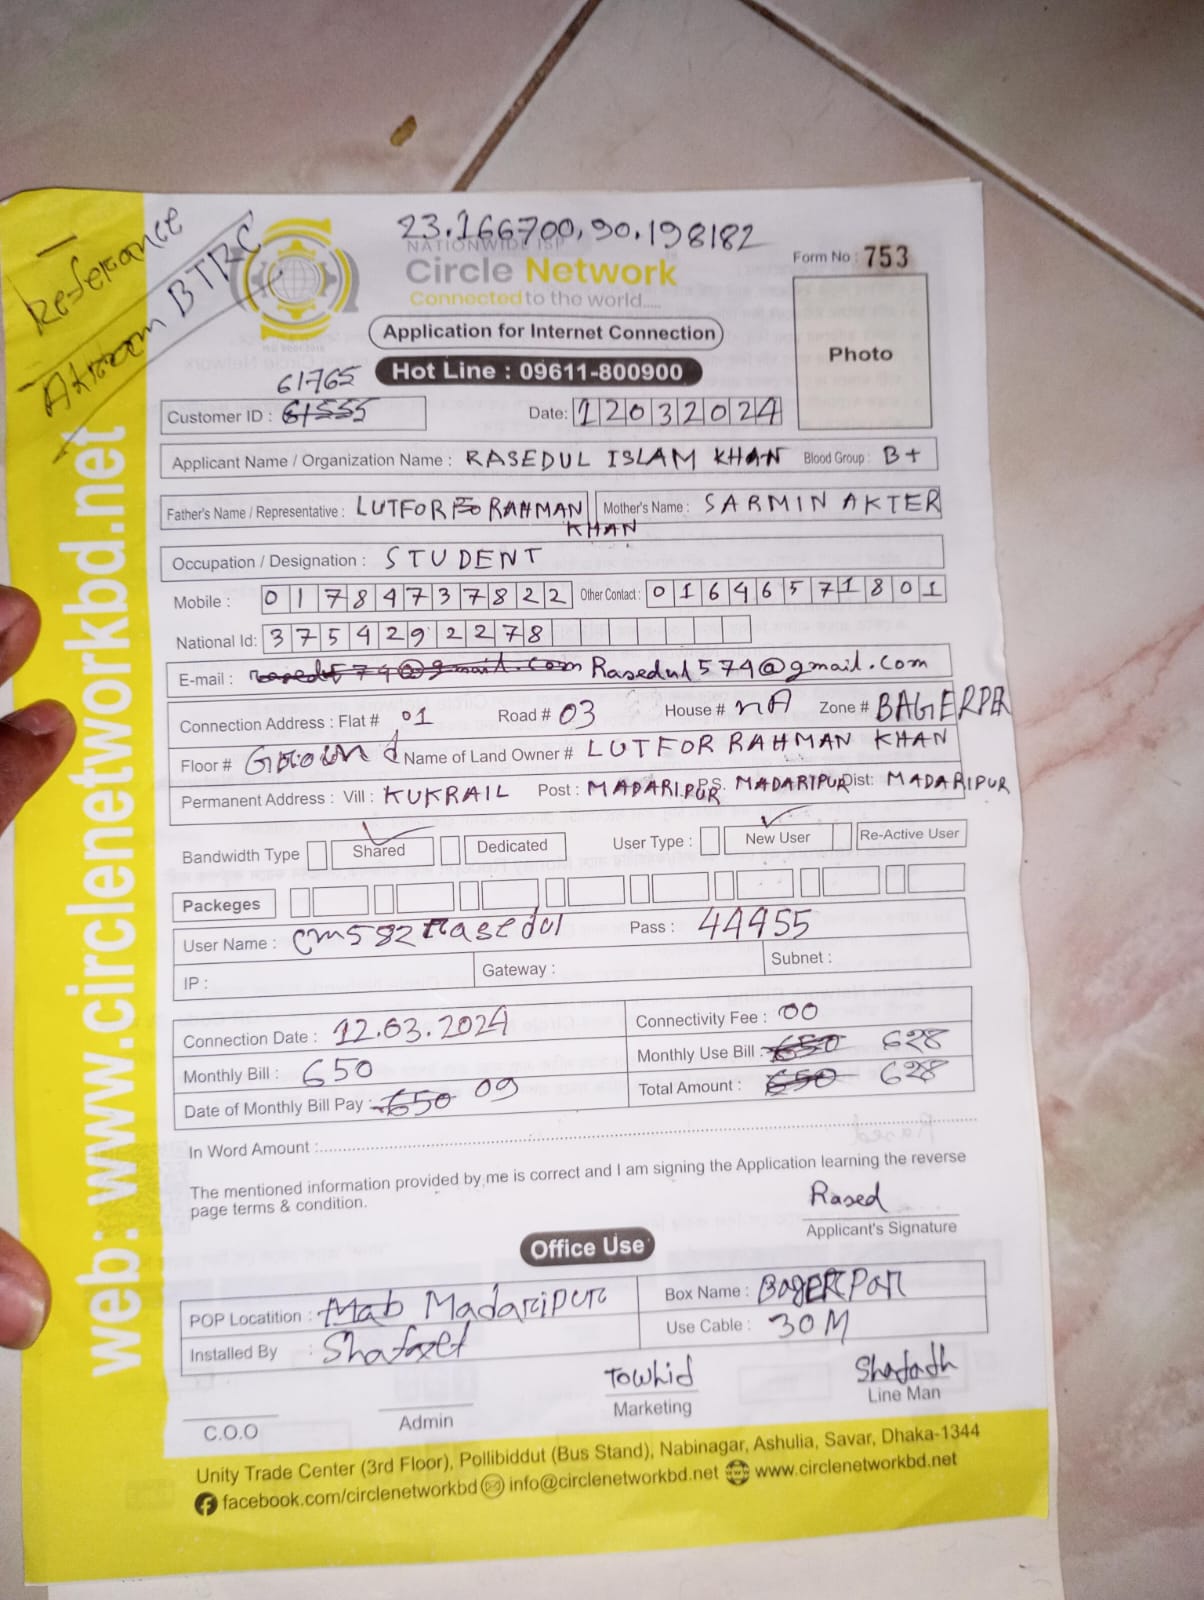 Reference
Akraam BTRC
23.166700,90.198182
NATIONWIDE ISP
Circle Network
Connected to the world.....
Form No : 753
Application for Internet Connection
Photo
Hot Line : 09611-800900
61765
Customer ID : 61555
Date: 12032024
Applicant Name / Organization Name : RASEDUL ISLAM KHAN Blood Group : B+
Father's Name / Representative : LUTFOR RAHMAN KHAN Mother's Name : SARMIN AKTER
Occupation / Designation : STUDENT
Mobile : 01784737822 Other Contact : 01646571801
National Id: 3754292278
E-mail : rasedul574@gmail.com Rasedul574@gmail.com
Connection Address : Flat # 01 Road # 03 House # nA Zone # BAGERPER
Floor # Ground Name of Land Owner # LUTFOR RAHMAN KHAN
Permanent Address : Vill : KUKRAIL Post : MADARIPUR P.S. MADARIPUR Dist: MADARIPUR
Bandwidth Type Shared Dedicated User Type : New User Re-Active User
Packeges
User Name : cm582Rasedul Pass : 44955
IP : Gateway : Subnet :
Connection Date : 12.03.2024 Connectivity Fee : 00
Monthly Bill : 650 Monthly Use Bill : 650 628
Date of Monthly Bill Pay : 650 09 Total Amount : 650 628
In Word Amount :
The mentioned information provided by me is correct and I am signing the Application learning the reverse
page terms & condition.
Rased
Applicant's Signature
Office Use
POP Locatition : Mab Madaripur Box Name : BagERPAR
Installed By : Use Cable : 30M
Towhid
C.O.O Admin Marketing Line Man
Unity Trade Center (3rd Floor), Pollibiddut (Bus Stand), Nabinagar, Ashulia, Savar, Dhaka-1344
facebook.com/circlenetworkbd info@circlenetworkbd.net www.circlenetworkbd.net
web: www.circlenetworkbd.net